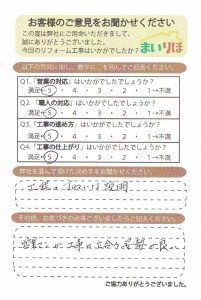 お客様のご意見をお聞かせください
この度は弊社にご用命いただきまして、
誠にありがとうございました。
今回のリフォーム工事はいかがでしたか？
まいりほ
以下の質問に関し、数字に○を囲んでご回答ください。
Q1.「営業の対応」はいかがでしたでしょうか？
満足←5・4・3・2・1→不満
Q2.「職人の対応」はいかがでしたでしょうか？
満足←5・4・3・2・1→不満
Q3.「工事の進め方」はいかがでしたでしょうか？
満足←5・4・3・2・1→不満
Q4.「工事の仕上がり」はいかがでしたでしょうか？
満足←5・4・3・2・1→不満
弊社を選んで頂けた決め手をお聞かせください。
説明
その他、お気づきの点等ございましたらご記入ください。
が良い
ご協力ありがとうございました。